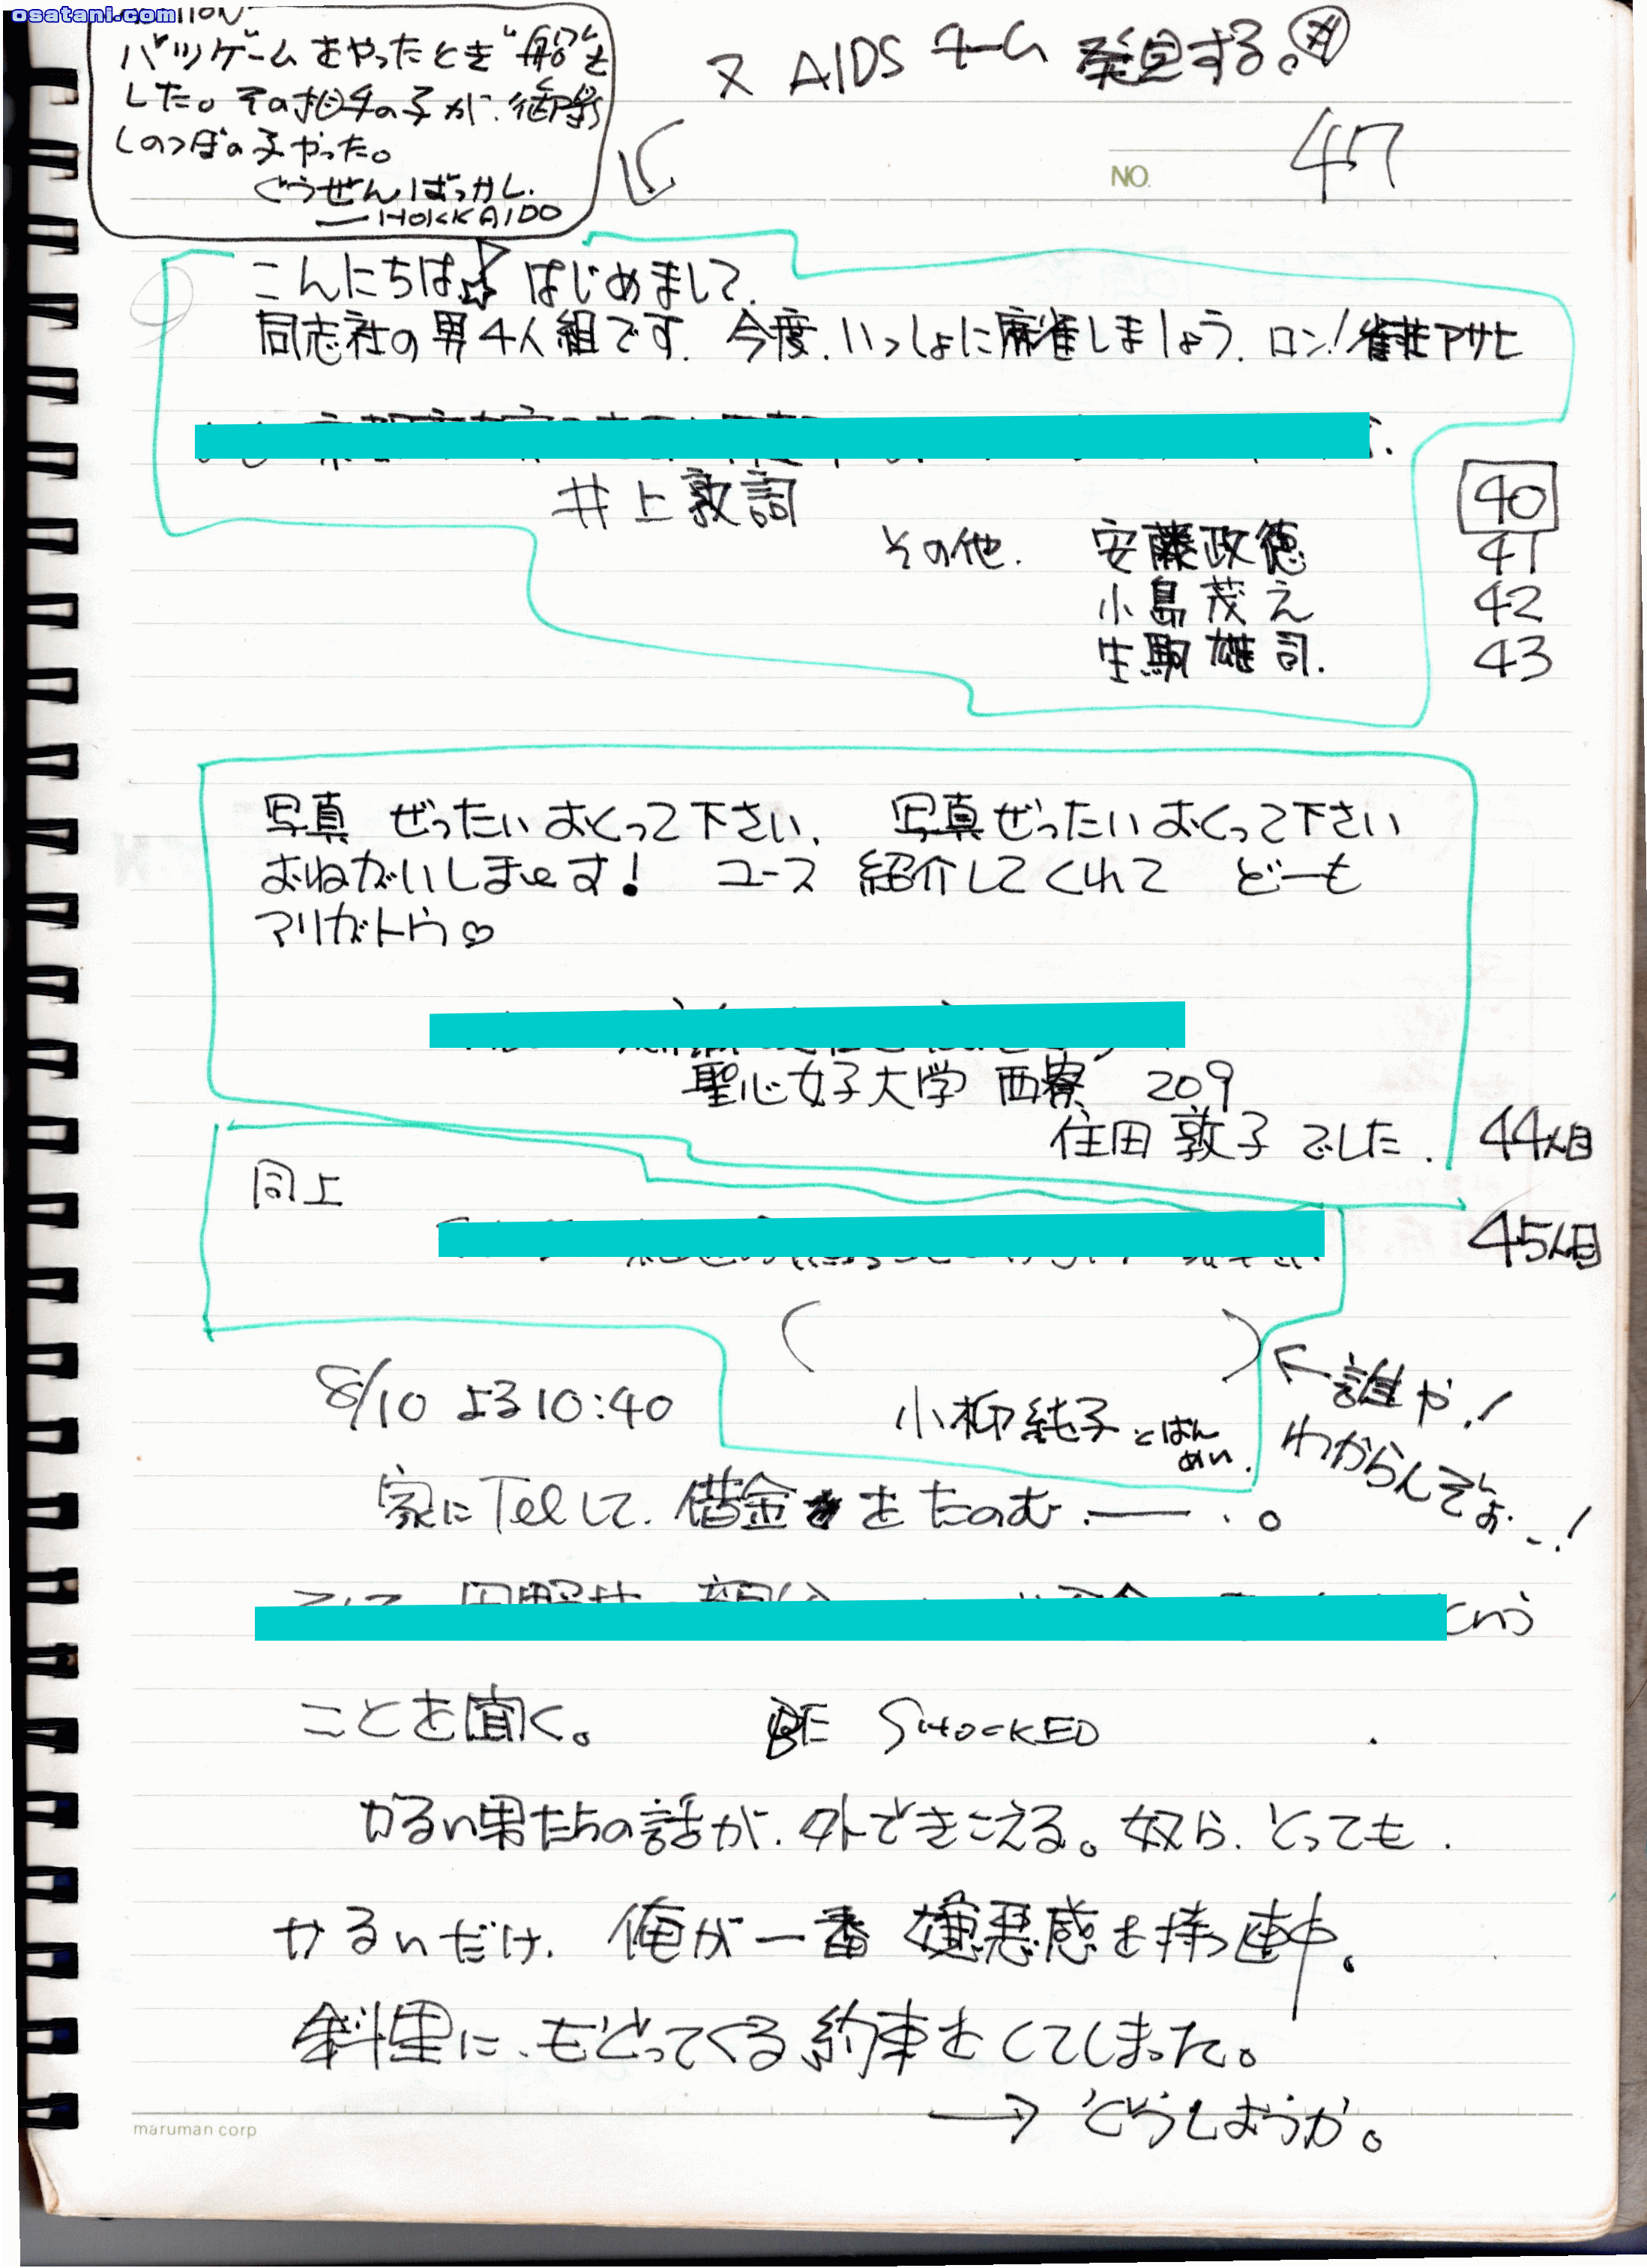 osatani.com
バツゲームをやったとき"船"を
した。その相手の子が、御影
しのつぼの子やった。
ぐうぜんばっかし.
— HOKKAIDO
ヌ AIDS チーム 発見する。
NO. 47
こんにちは☆ はじめまして.
同志社の男4人組です. 今度、いっしょに麻雀しましょう. ロン!雀荘アサヒ
井上敦詞 40
その他. 安藤政徳 41
小島茂え 42
生駒雄司. 43
写真 ぜったいおくって下さい. 写真ぜったいおくって下さい
おねがいしまーす! ユース 紹介してくれて どーも
アリガトウ♡
聖心女子大学 西寮 209
住田敦子 でした. 44人目
同上
45人目
8/10 よる10:40
小柳純子 とはん
めい.
← 誰や!
わからんぞよ..!
家にTelして. 借金をたのむ.—.。
という
ことを聞く。 BE SHOCKED
かるい男たちの話が、外できこえる。奴ら、とっても.
かるいだけ. 俺が一番 嫌悪感を持つ連中。
斜里に、もどってくる約束をしてしまった。
→ どうしようか。
maruman corp